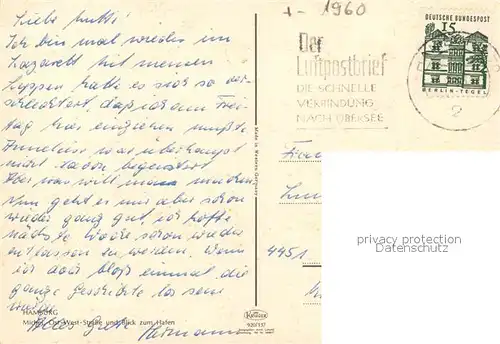 Liebe Mutti!
Ich bin mal wieder im
Lazarett. Mit meinen
Lippen hatte es sich so ver-
schlechtert, daß ich am Frei-
tag hier einziehen mußte.
war überhaupt
nicht davon begeistert
Aber was will man machen
Nun geht es mir aber schon
wieder ganz gut, ich hoffe
nächste Woche schon wieder
entlassen zu werden. Wenn
ich doch bloß einmal die
ganze Geschichte los sein
würde.
Alles Gute Hermann
HAMBURG
Ost-West-Straße und Blick zum Hafen
Made in Western Germany
Krüger
920/137
+- 1960
Der
Luftpostbrief
DIE SCHNELLE
VERBINDUNG
NACH ÜBERSEE
2
DEUTSCHE BUNDESPOST
15
BERLIN-TEGEL
4451
privacy protection
Datenschutz